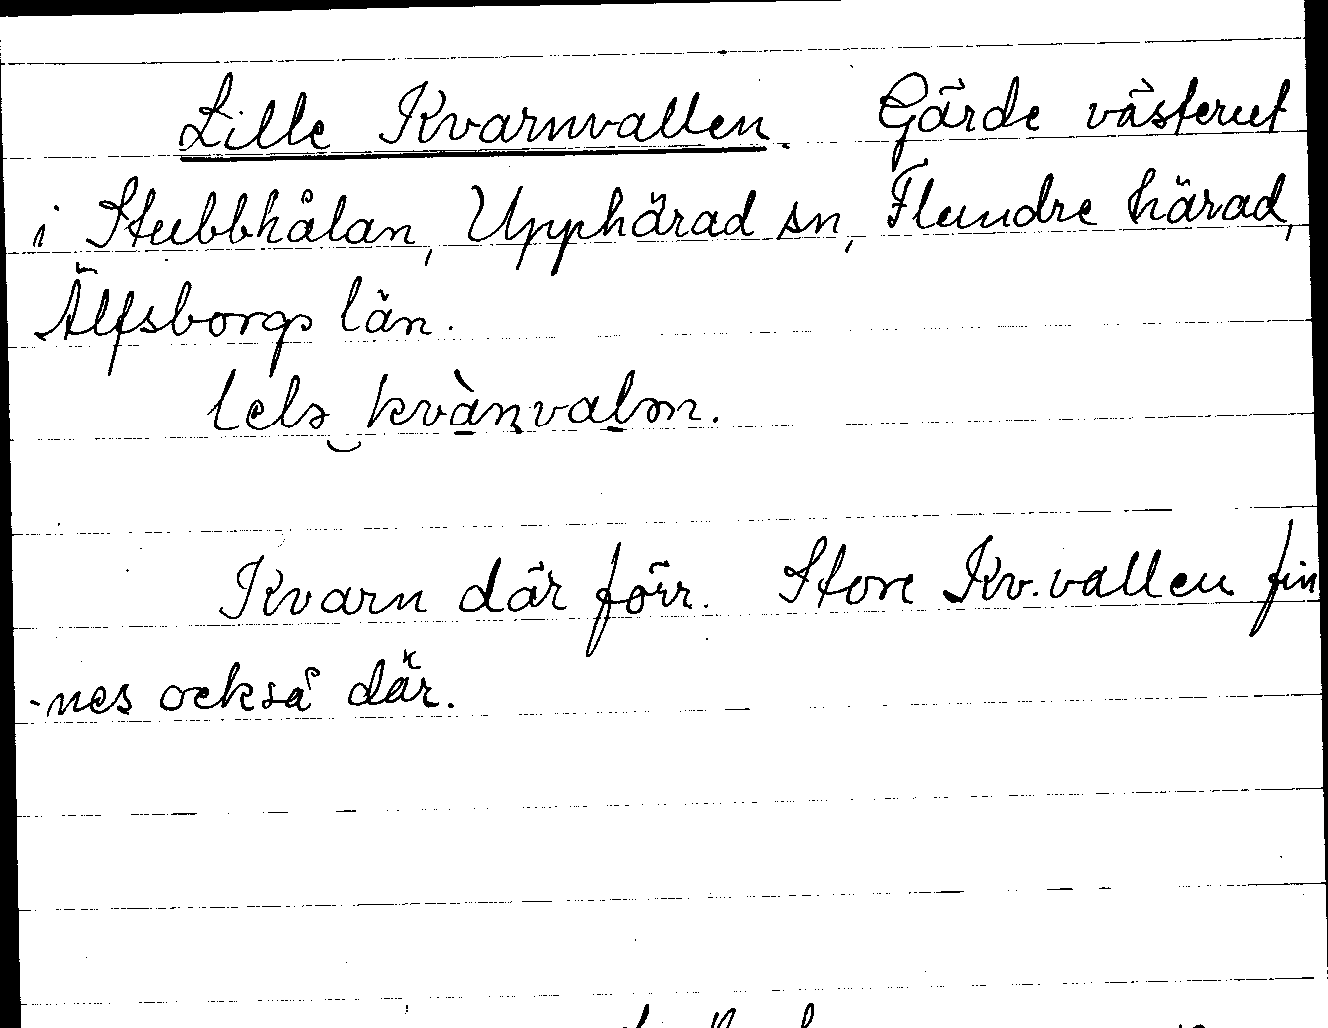 Lille Kvarnvallen. Gärde västerut
i Stubbhålan, Upphärad sn, Flundre härad,
Älfsborgs län.
lelə kvànvalən.
Kvarn där förr. Store Kv.vallen fin
-nes också där.